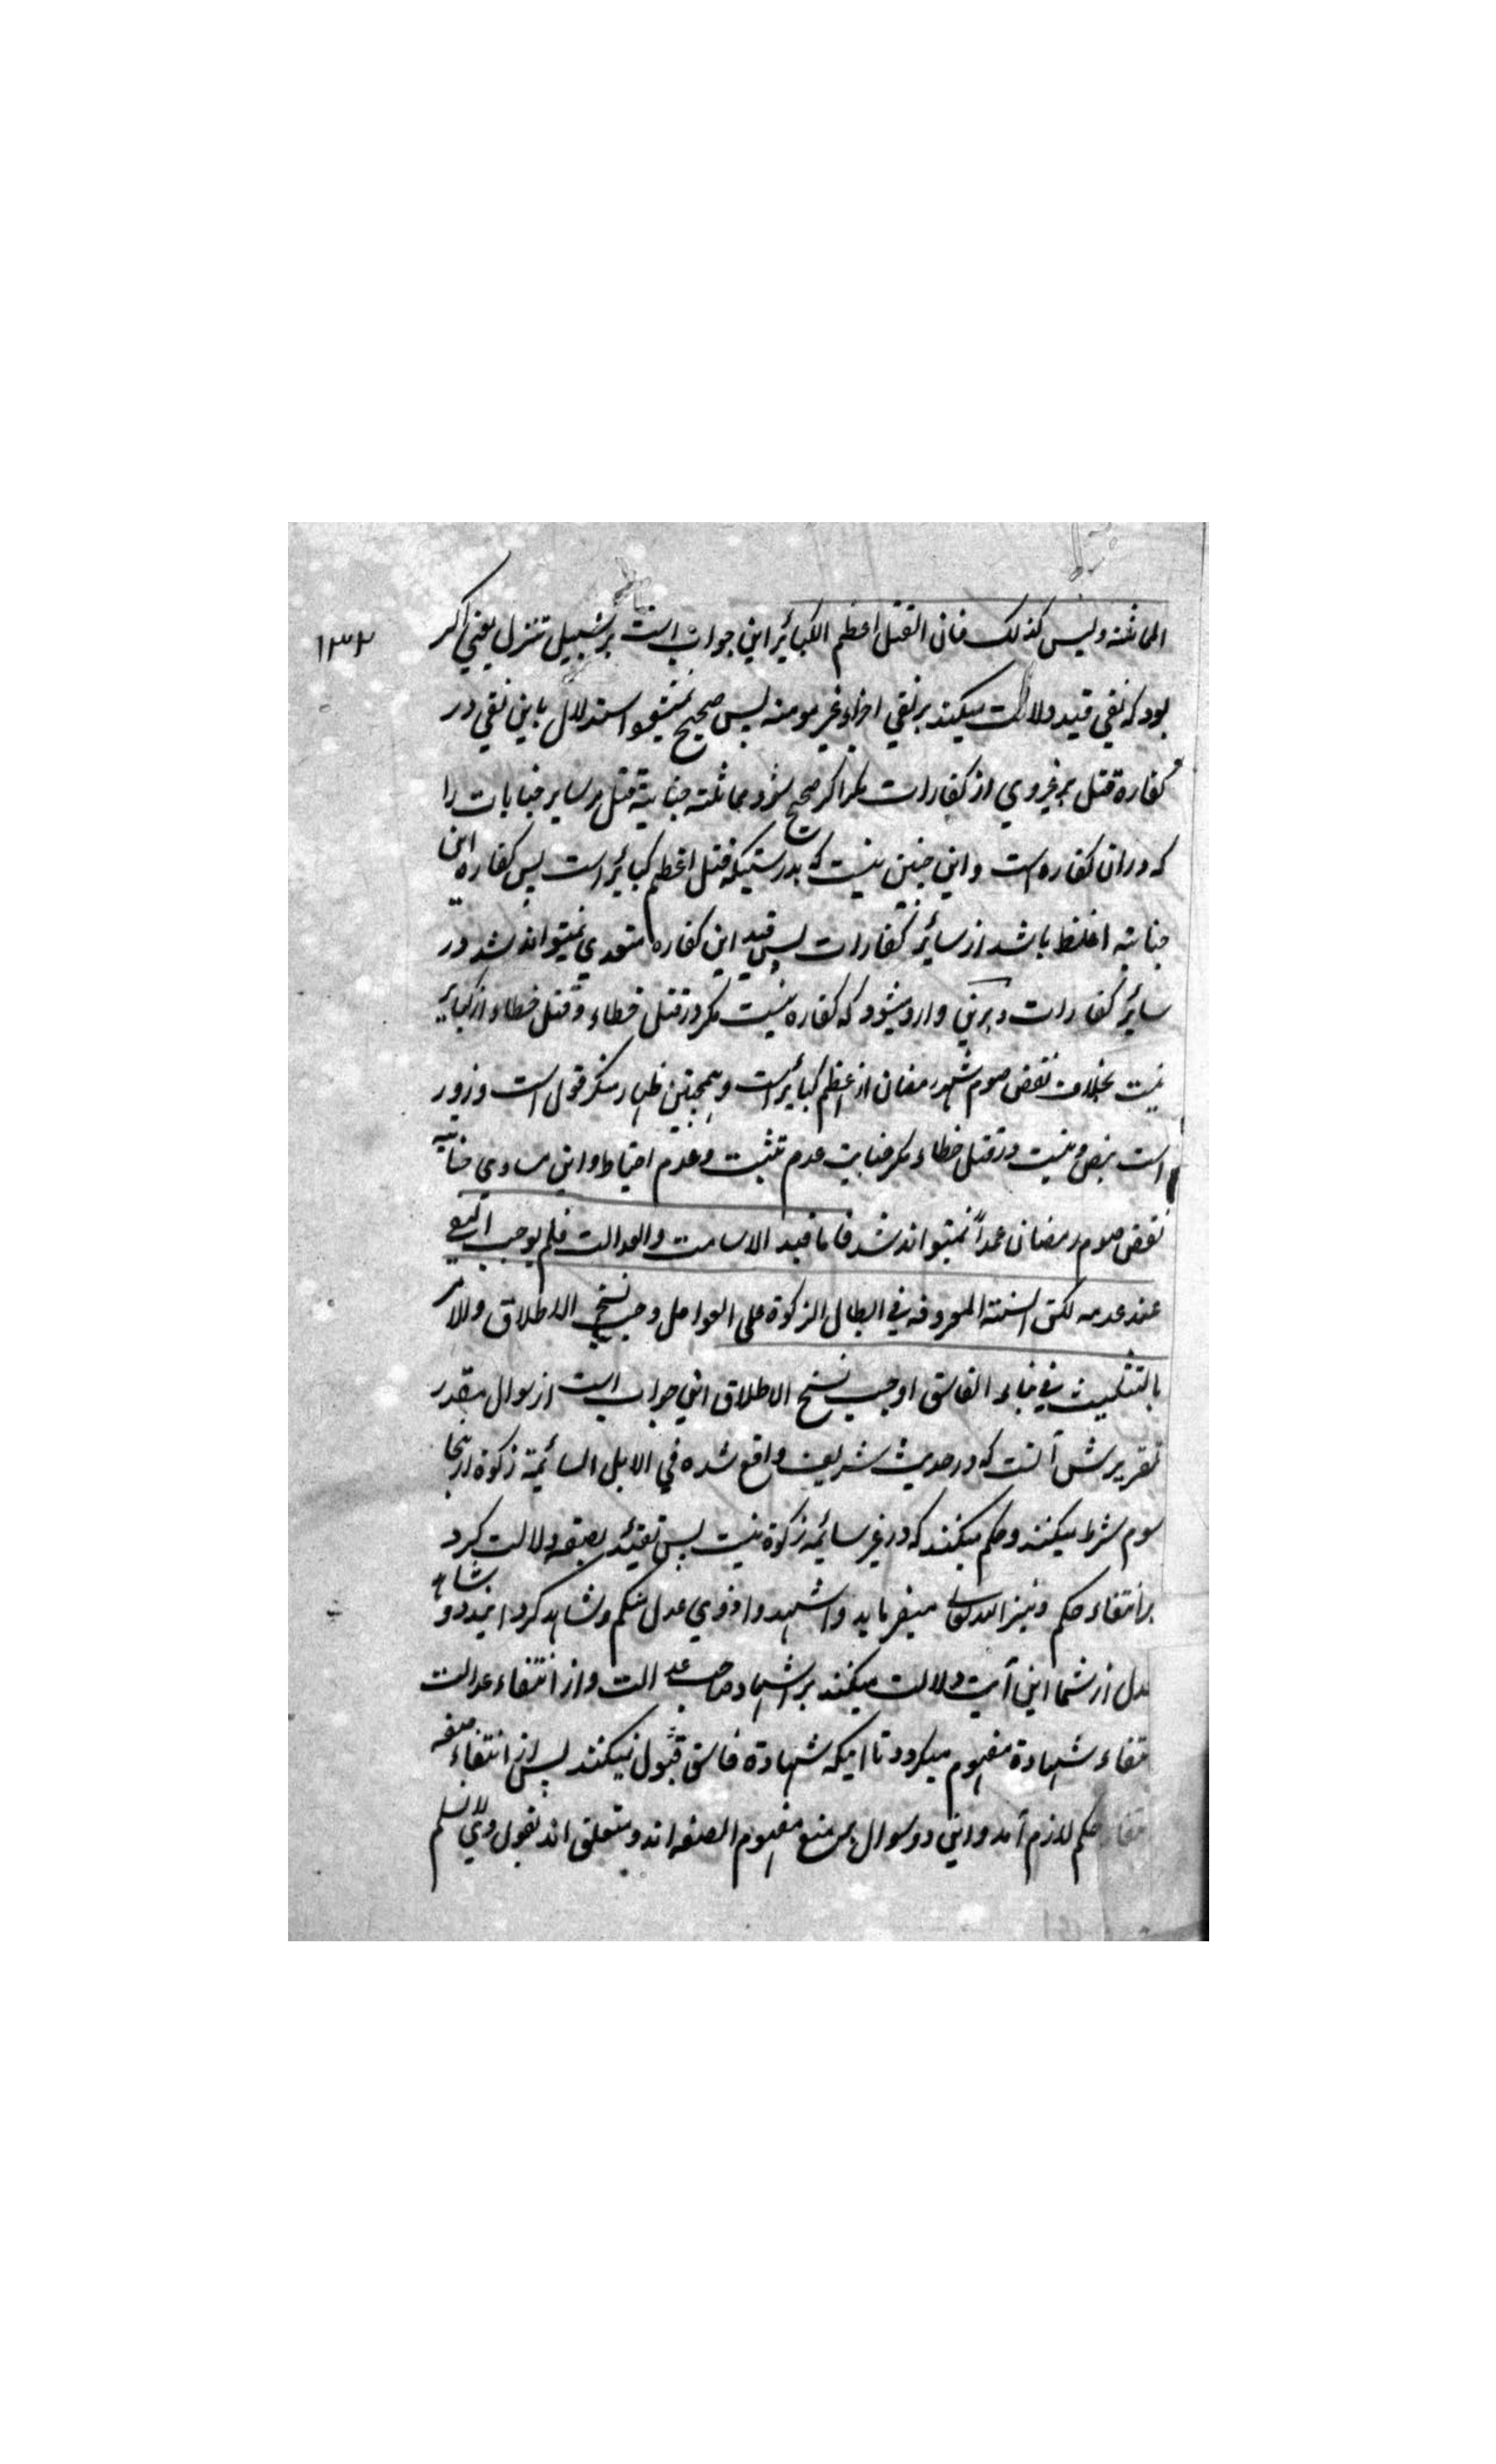 ۱۳۲
المماثلة وليس كذلك فان القتل اعظم الكبائر اين جواب است بر سبيل تنزل يعني اكر
بود كه نفي قيد دلالت ميكند بر نفي اجزاء غير مومنه پس صحيح نميشود استدلال باين نفي در
كفاره قتل بر غير وي از كفارات مكر اكر صحيح شود مماثلته جناية قتل مر ساير جنايات را
كه دران كفاره است و اين چنين نيست كه بدرستيكه قتل اعظم كبائر است پس كفاره اين
جنايته اغلظ باشد از سائر كفارات پس قيد اين كفاره متعدي نميتواند شد در
سائر كفارات و برين وارد ميشود كه كفاره نيست مكر در قتل خطاء و قتل خطاء از كبائر
نيست بخلاف نقض صوم شهر رمضان از اعظم كبائر است و همچنين ظهار منكر قول است و زور
است بنص و نيست در قتل خطاء مكر جنايت عدم تثبت و عدم احتياط و اين مساوي جنايته
نقض صوم رمضان عمداً نميتواند شد فاما قيد الاسامت والعدالت فلم يوجب النفي
عند عدمه لكن السنة المعروفه في ابطال الزكوة على العوامل وجب نسخ الاطلاق والامر
بالتثبت في نباء الفاسق اوجب نسخ الاطلاق اين جواب است از سوال مقدر
تقريرش آنست كه در حديث شريف واقع شده في الابل السائمة زكوة ازينجا
سوم شرط ميكنند و حكم ميكنند كه در غير سائمه زكوة نيست پس تقئيد بصفه دلالت كرد
بر انتفاء حكم و نيز الله تعالى ميفرمايد و اشهدوا ذوي عدل منكم و شاهد كردانيد دو شاهد
عدل از شما اين آيت دلالت ميكند بر اشهاد صاحب عدالت و از انتفاء عدالت
انتفاء شهادة مفهوم ميكردد تا اينكه شهادة فاسق قبول نميكنند پس از انتفاء صفه
انتفاء حكم لازم آمد و اين دو سوال بر منع مفهوم الصفه اند و متعلق اند بقول وي لا نسلم